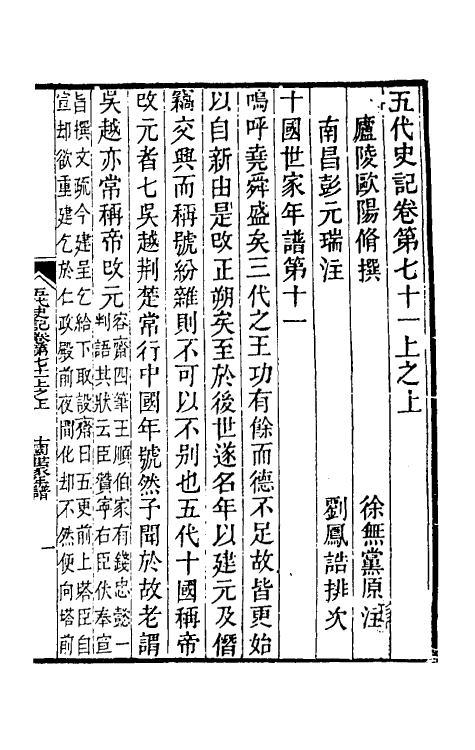 五代史記卷第七十一上之上
廬陵歐陽脩撰　徐無黨原注
南昌彭元瑞注　劉鳳誥排次
十國世家年譜第十一
嗚呼堯舜盛矣三代之王功有餘而德不足故皆更始
以自新由是改正朔矣至於後世遂名年以建元及僭
竊交興而稱號紛雜則不可以不别也五代十國稱帝
改元者七吳越荆楚常行中國年號然予聞於故老謂
吳越亦常稱帝改元
容齋四筆王順伯家有錢忠懿一
判語其狀云臣贊寧右臣伏奉宣
旨撰文疏今建呈乞給下取設齋日五更前上塔臣自
宣却欲重建乞於仁政殿前夜間化却不然便向塔前
五代史記卷第七十一上之上　十國世家年譜　一